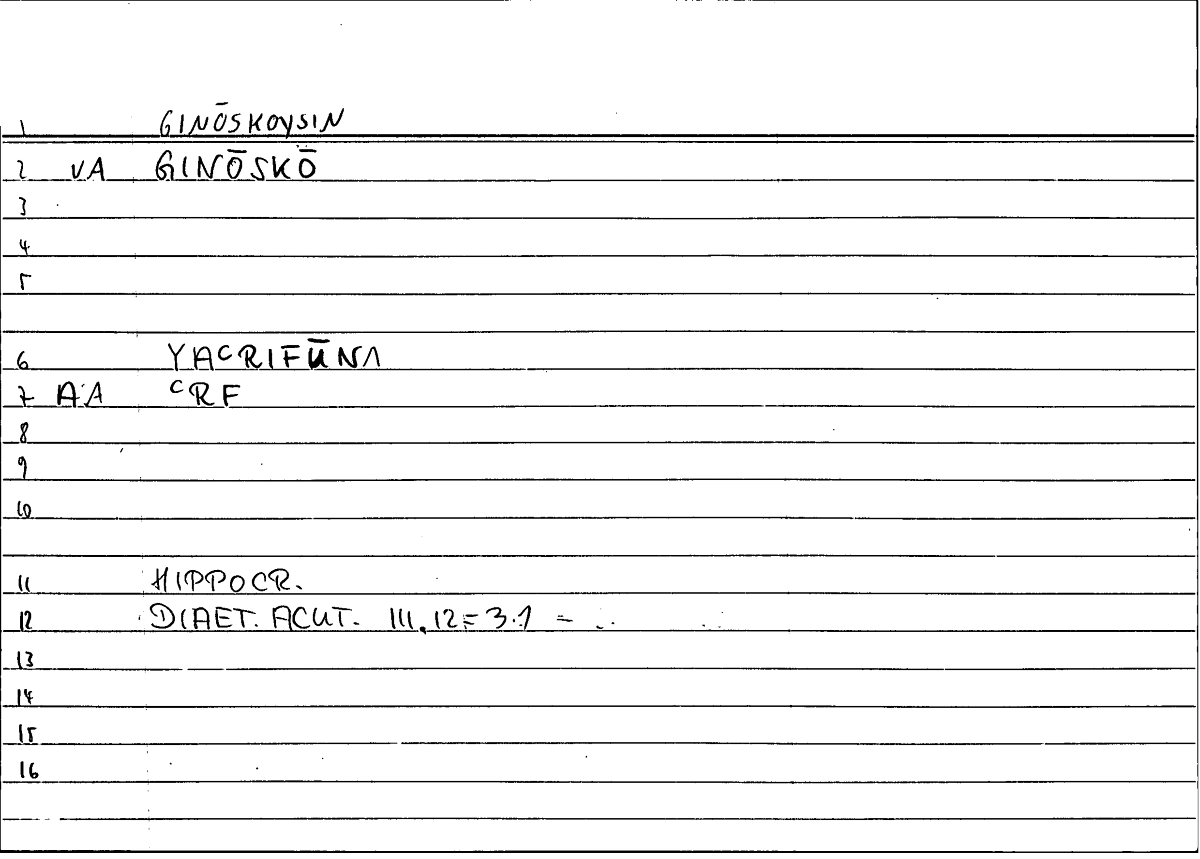 1 GINŌSKOYSIN
2 VA GINŌSKŌ
3
4
5
6 YAᶜRIFŪNA
7 AA ᶜRF
8
9
10
11 HIPPOCR.
12 DIAET. ACUT. III,12=3.1 =
13
14
15
16